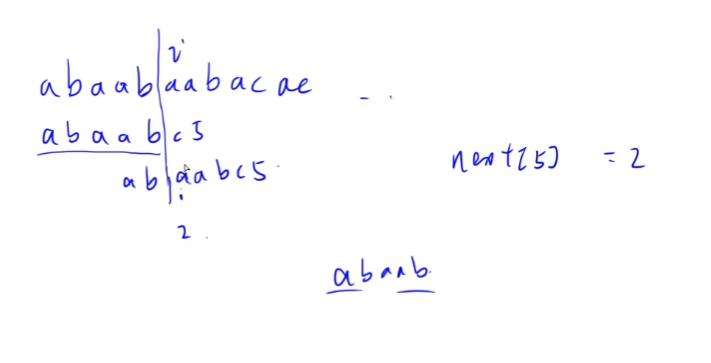 i
abaab|aabacae - .
abaab|c5
ab|aabc5.
next[5] = 2
2.
abaab.